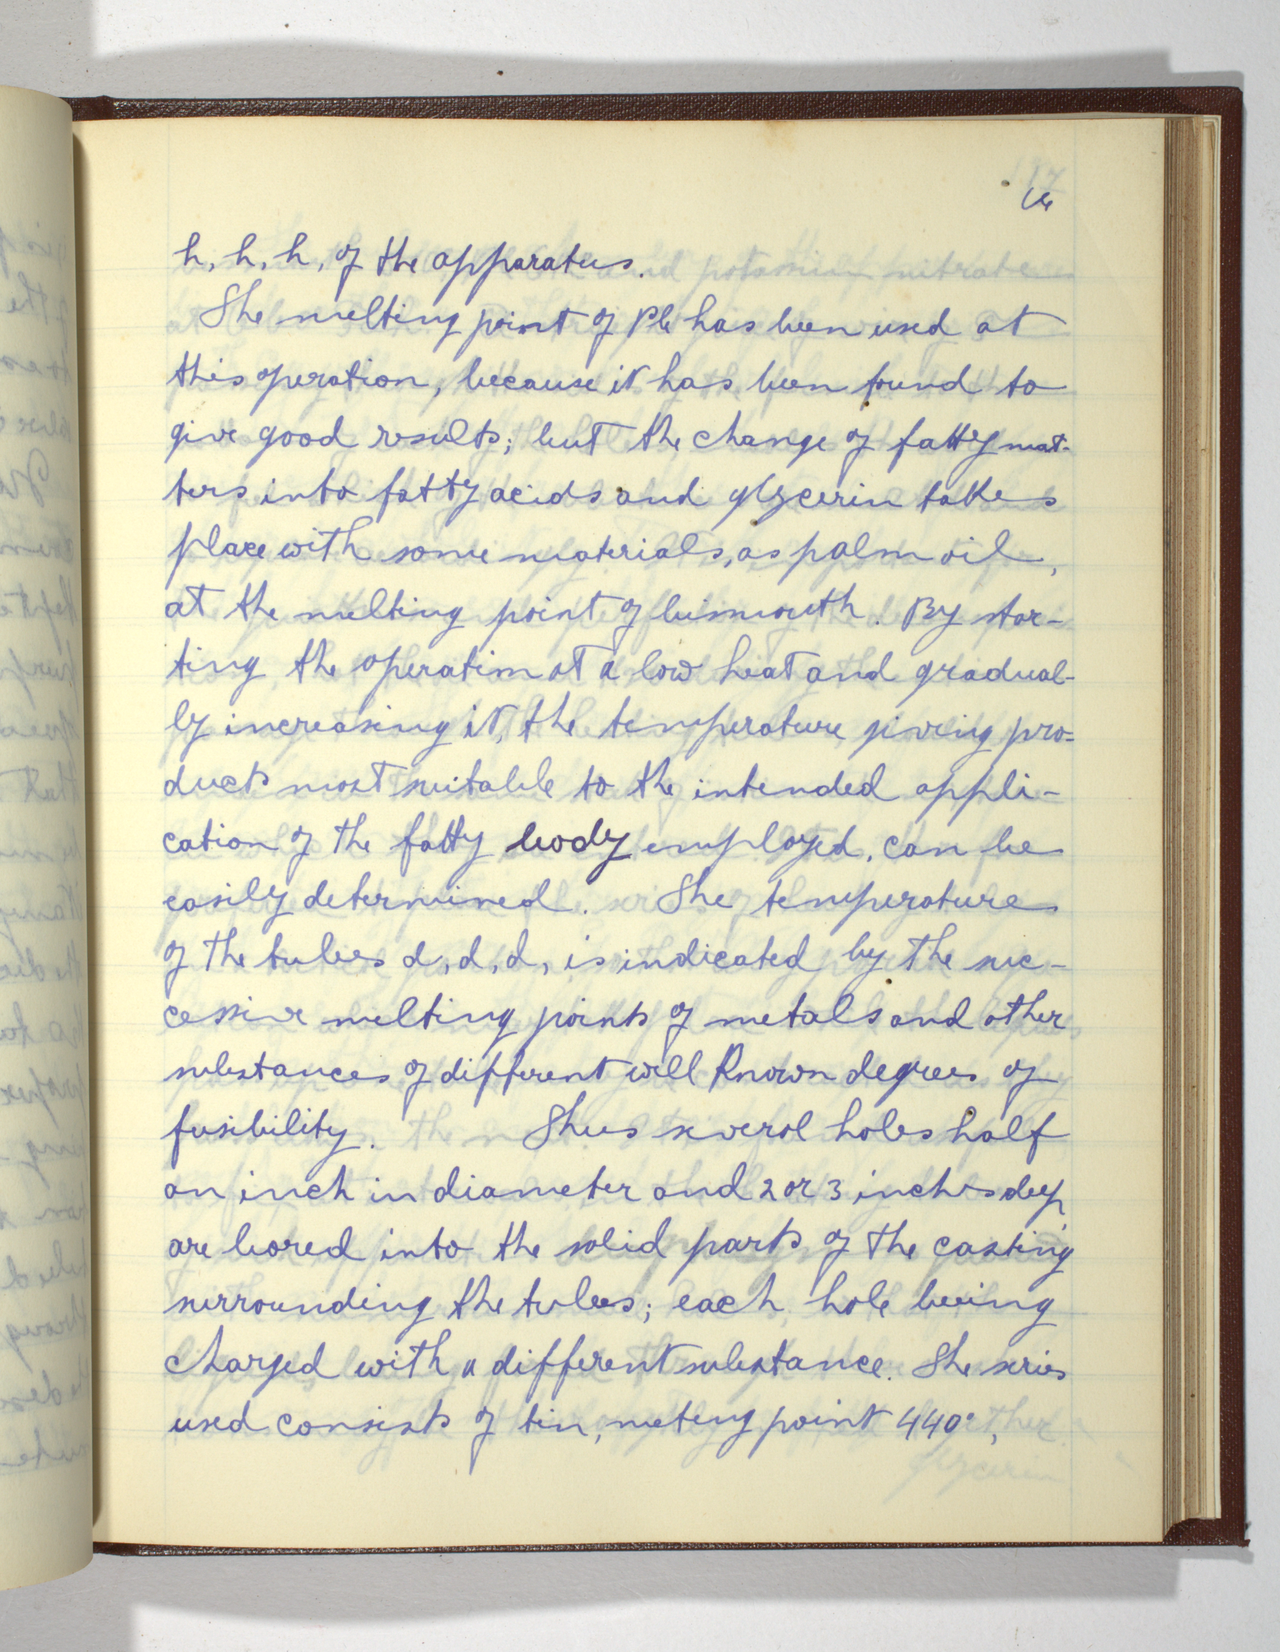 16
h, h, h, of the apparatus.
The melting point of Pb has been used at
this operation, because it has been found to
give good results; but the change of fatty mat-
ters into fatty acids and glycerin takes
place with some materials, as palm oil,
at the melting point of bismouth. By star-
ting the operation at a low heat and gradual-
ly increasing it, the temperature giving pro-
ducts most suitable to the intended appli-
cation of the fatty body employed, can be
easily determined. The temperature
of the tubes d, d, d, is indicated by the suc-
cessive melting points of metals and other
substances of different well known degrees of
fusibility. Thus several holes half
an inch in diameter and 2 or 3 inches deep
are bored into the solid parts of the casting
surrounding the tubes; each hole being
charged with a different substance. The series
used consists of tin, meting point 440°,